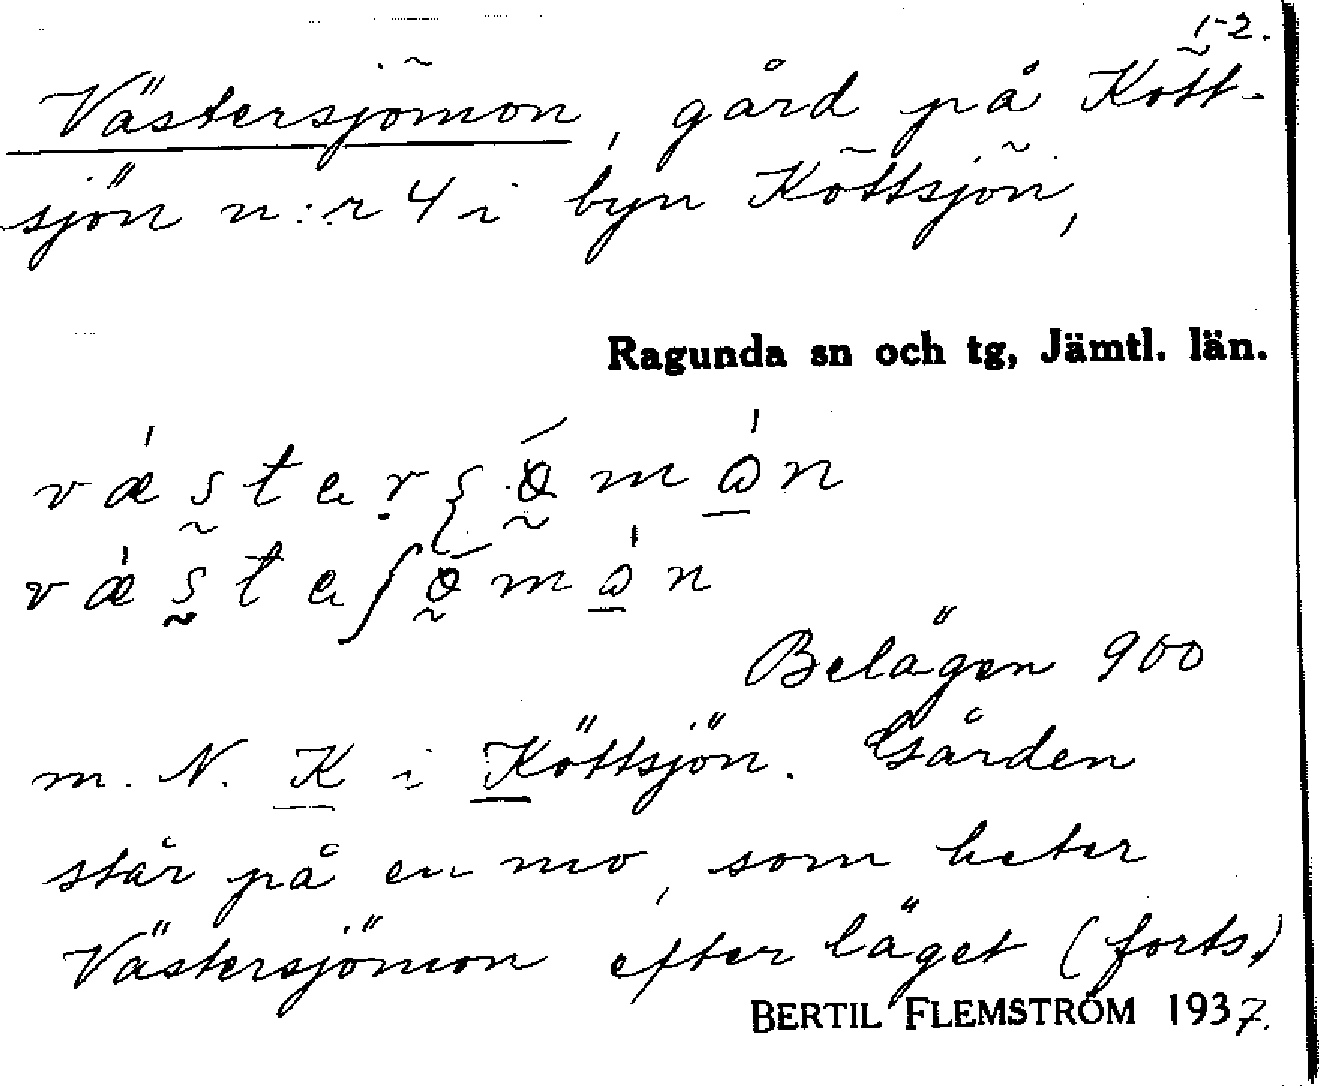 1-2.
Västersjömon, gård på Kött-
sjön n:r 4 i byn Köttsjön,
Ragunda sn och tg, Jämtl. län.
Belägen 900
m. N. K i Köttsjön. Gården
står på en mo, som heter
Västersjömon efter läget (forts.)
BERTIL FLEMSTRÖM 1937.